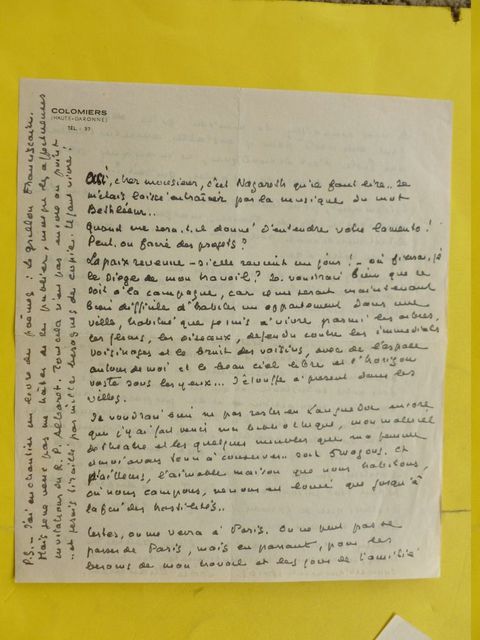 COLOMIERS
(HAUTE-GARONNE)
TÉL. : 37
Oui, cher monsieur, c'est Nazareth qu'il faut lire.. Je
m'étais laissé entraîner par la musique du mot
Bethléem..
Quand me sera-t-il donné d'entendre votre lamento!
Peut-on faire des projets?
La paix revenue - si elle revient un jour! - où fixerai-je
le siège de mon travail? Je voudrais bien que ce
soit à la campagne, car ce me serait maintenant
bien difficile d'habiter un appartement dans une
ville, habitué que je suis à vivre parmi les arbres,
les fleurs, les oiseaux, défendu contre les immédiats
voisinages et le bruit des voisins, avec de l'espace
autour de moi et le beau ciel libre et l'horizon
vaste sous les yeux... J'étouffe à présent dans les
villes.
Je voudrais aussi ne pas rester en Languedoc encore
que j'y ai fait venir ma bibliothèque, mon matériel
de théâtre et les quelques meubles que ma femme
et moi avons tenu à conserver.. soit 5 wagons. Et
d'ailleurs, l'aimable maison que nous habitons,
où nous campons, ne nous est louée que jusqu'à
la fin des hostilités..
Certes, on me verra à Paris. On ne peut pas se
passer de Paris, mais en passant, pour les
besoins de mon travail et les joies de l'amitié
P.S. - J'ai en chantier un livre de poèmes : Le grillon Franciscain.
Mais je ne veux pas me hâter de le publier, malgré les affectueuses
invitations du R.P. Tout cela n'est pas encore au point
.. et je suis tiraillé par mille besognes de copie. Il faut vivre!